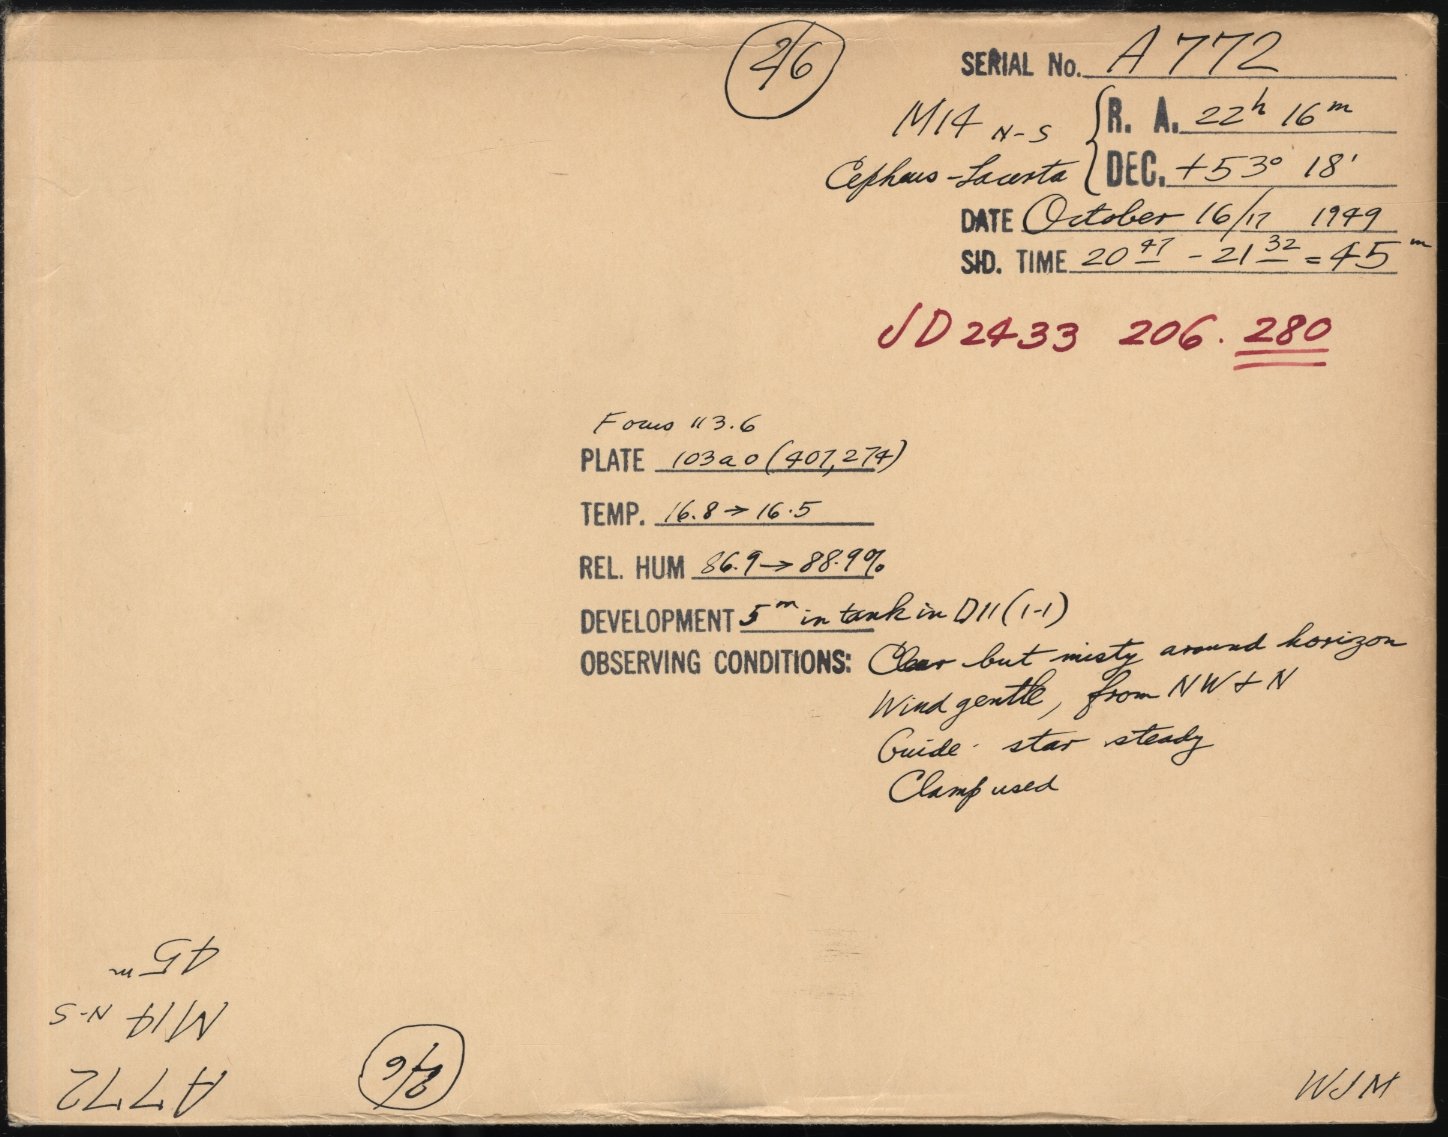 26
SERIAL No. A 772
M14 N-S { R. A. 22h 16m
Cepheus-Lacerta DEC. +53° 18'
DATE October 16/17 1949
SID. TIME 20 47 - 21 32 = 45m
JD 2433 206.280
Focus 113.6
PLATE 103a0 (407,274)
TEMP. 16.8 → 16.5
REL. HUM 86.9 → 88.9%
DEVELOPMENT 5m in tank in D11 (1-1)
OBSERVING CONDITIONS: Clear but misty around horizon
Wind gentle, from NW & N
Guide-star steady
Clamp used
45m
M14 N-S
A772
WJM